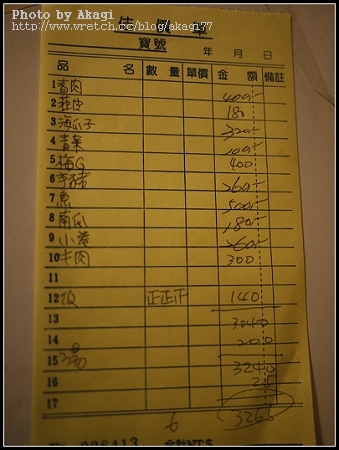 Photo by Akagi
http://www.wretch.cc/blog/akagi77
寶號 年 月 日
品 名 數 量 單價 金 額 備註
1 畜肉 400-
2 韮皮 180
3 海瓜子 320-
4 青菜 100-
5 梅G 400
6 李豬 260-
7 魚 500-
8 南瓜 180-
9 小卷 260-
10 牛肉 300
11
12 飯 正正正 140
13 3040
14 200
15 3240
16 25
17
6 3265
合計NT$